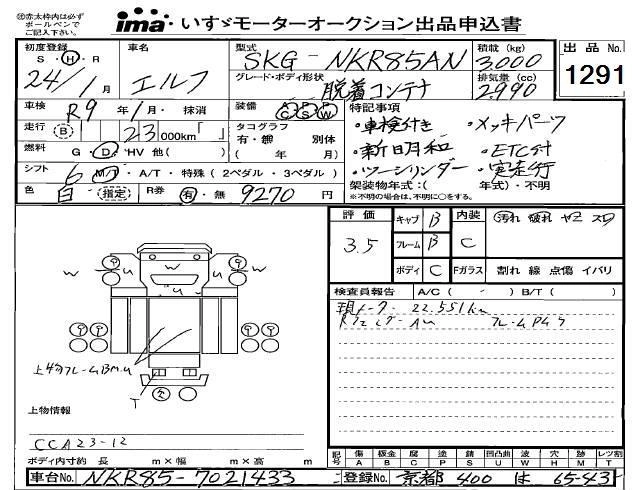 ㊟赤太枠内は必ず
ボールペンで
ご記入下さい。
ima いすゞモーターオークション出品申込書
初度登録
S・H・R
24年1月
車名
エルフ
型式
SKG-NKR85AN
積載(kg)
3,000
出品No.
1291
グレード・ボディ形状
脱着コンテナ
排気量(cc)
2,990
車検 R9年1月・抹消
装備 AC PS PW
特記事項
・車検付き ・メッキパーツ
走行 B 23,000km「 」
タコグラフ
有・無 別体
( 年 月)
・新明和 ・ETC付
燃料 G・D・HV 他( )
・ツーシリンダー ・実走行
シフト 6 M/T・A/T・特殊(2ペダル・3ペダル)
架装物年式:( 年式)・不明
※不明の場合は、不明に○をする。
色 白 指定 R券 有・無 9270円
評価
3.5
キャブ B 内装 C
フレーム B
ボディ C Fガラス
汚れ 破れ ヤニ スロ
割れ 線 点傷 イバリ
検査員報告 A/C( - ) B/T( )
22.551km
W W u u u
上物フレームBM.u
T
上物情報
CCA23-12
ボディ内寸約 長 m×幅 m×高 m
記号 傷 A 板金 B 腐 C 塗 P 錆 S 凹凸曲 U 波 W 穴 H 跡 M レンズ割 T
車台No. NKR85-7021433
登録No. 京都 400 は 65-43